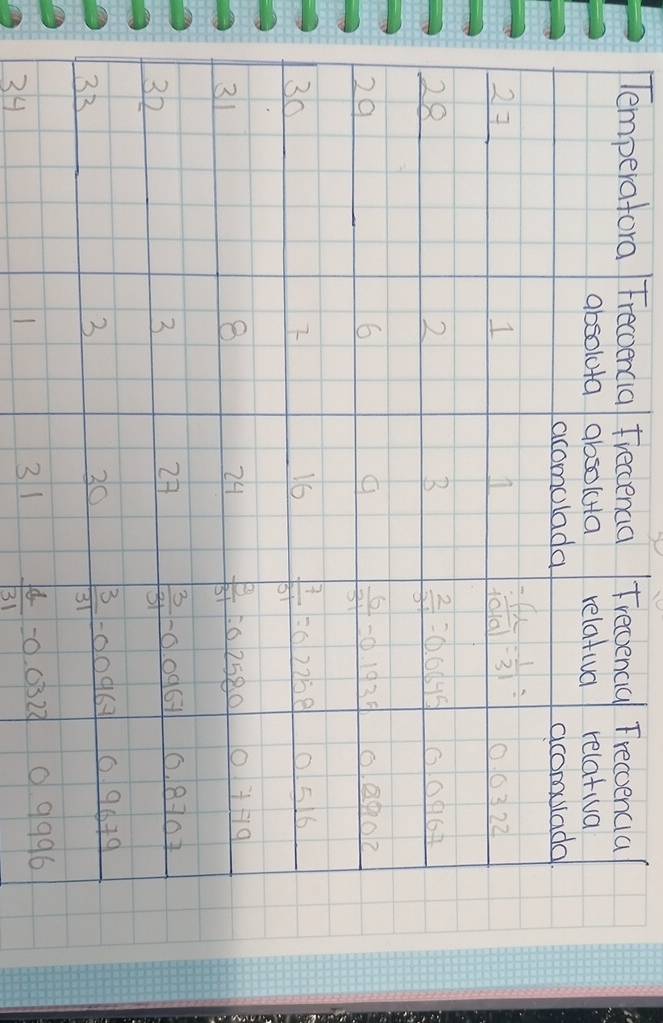 Temperatura Frecuencia absoluta Frecuencia absoluta acumulada Frecuencia relativa Frecuencia relativa acumulada.
27 1 1 total = 1/31 = 0.0322
28 2 3 2/31 = 0.0645 0.0967
29 6 9 6/31 - 0.1935 0.2902
30 7 16 7/31 = 0.2258 0.516
31 8 24 8/31 = 0.2580 0.7779
32 3 27 3/31 - 0.0967 0.8707
33 3 30 3/31 - 0.0967 0.9679
34 1 31 1/31 - 0.0322 0.9996